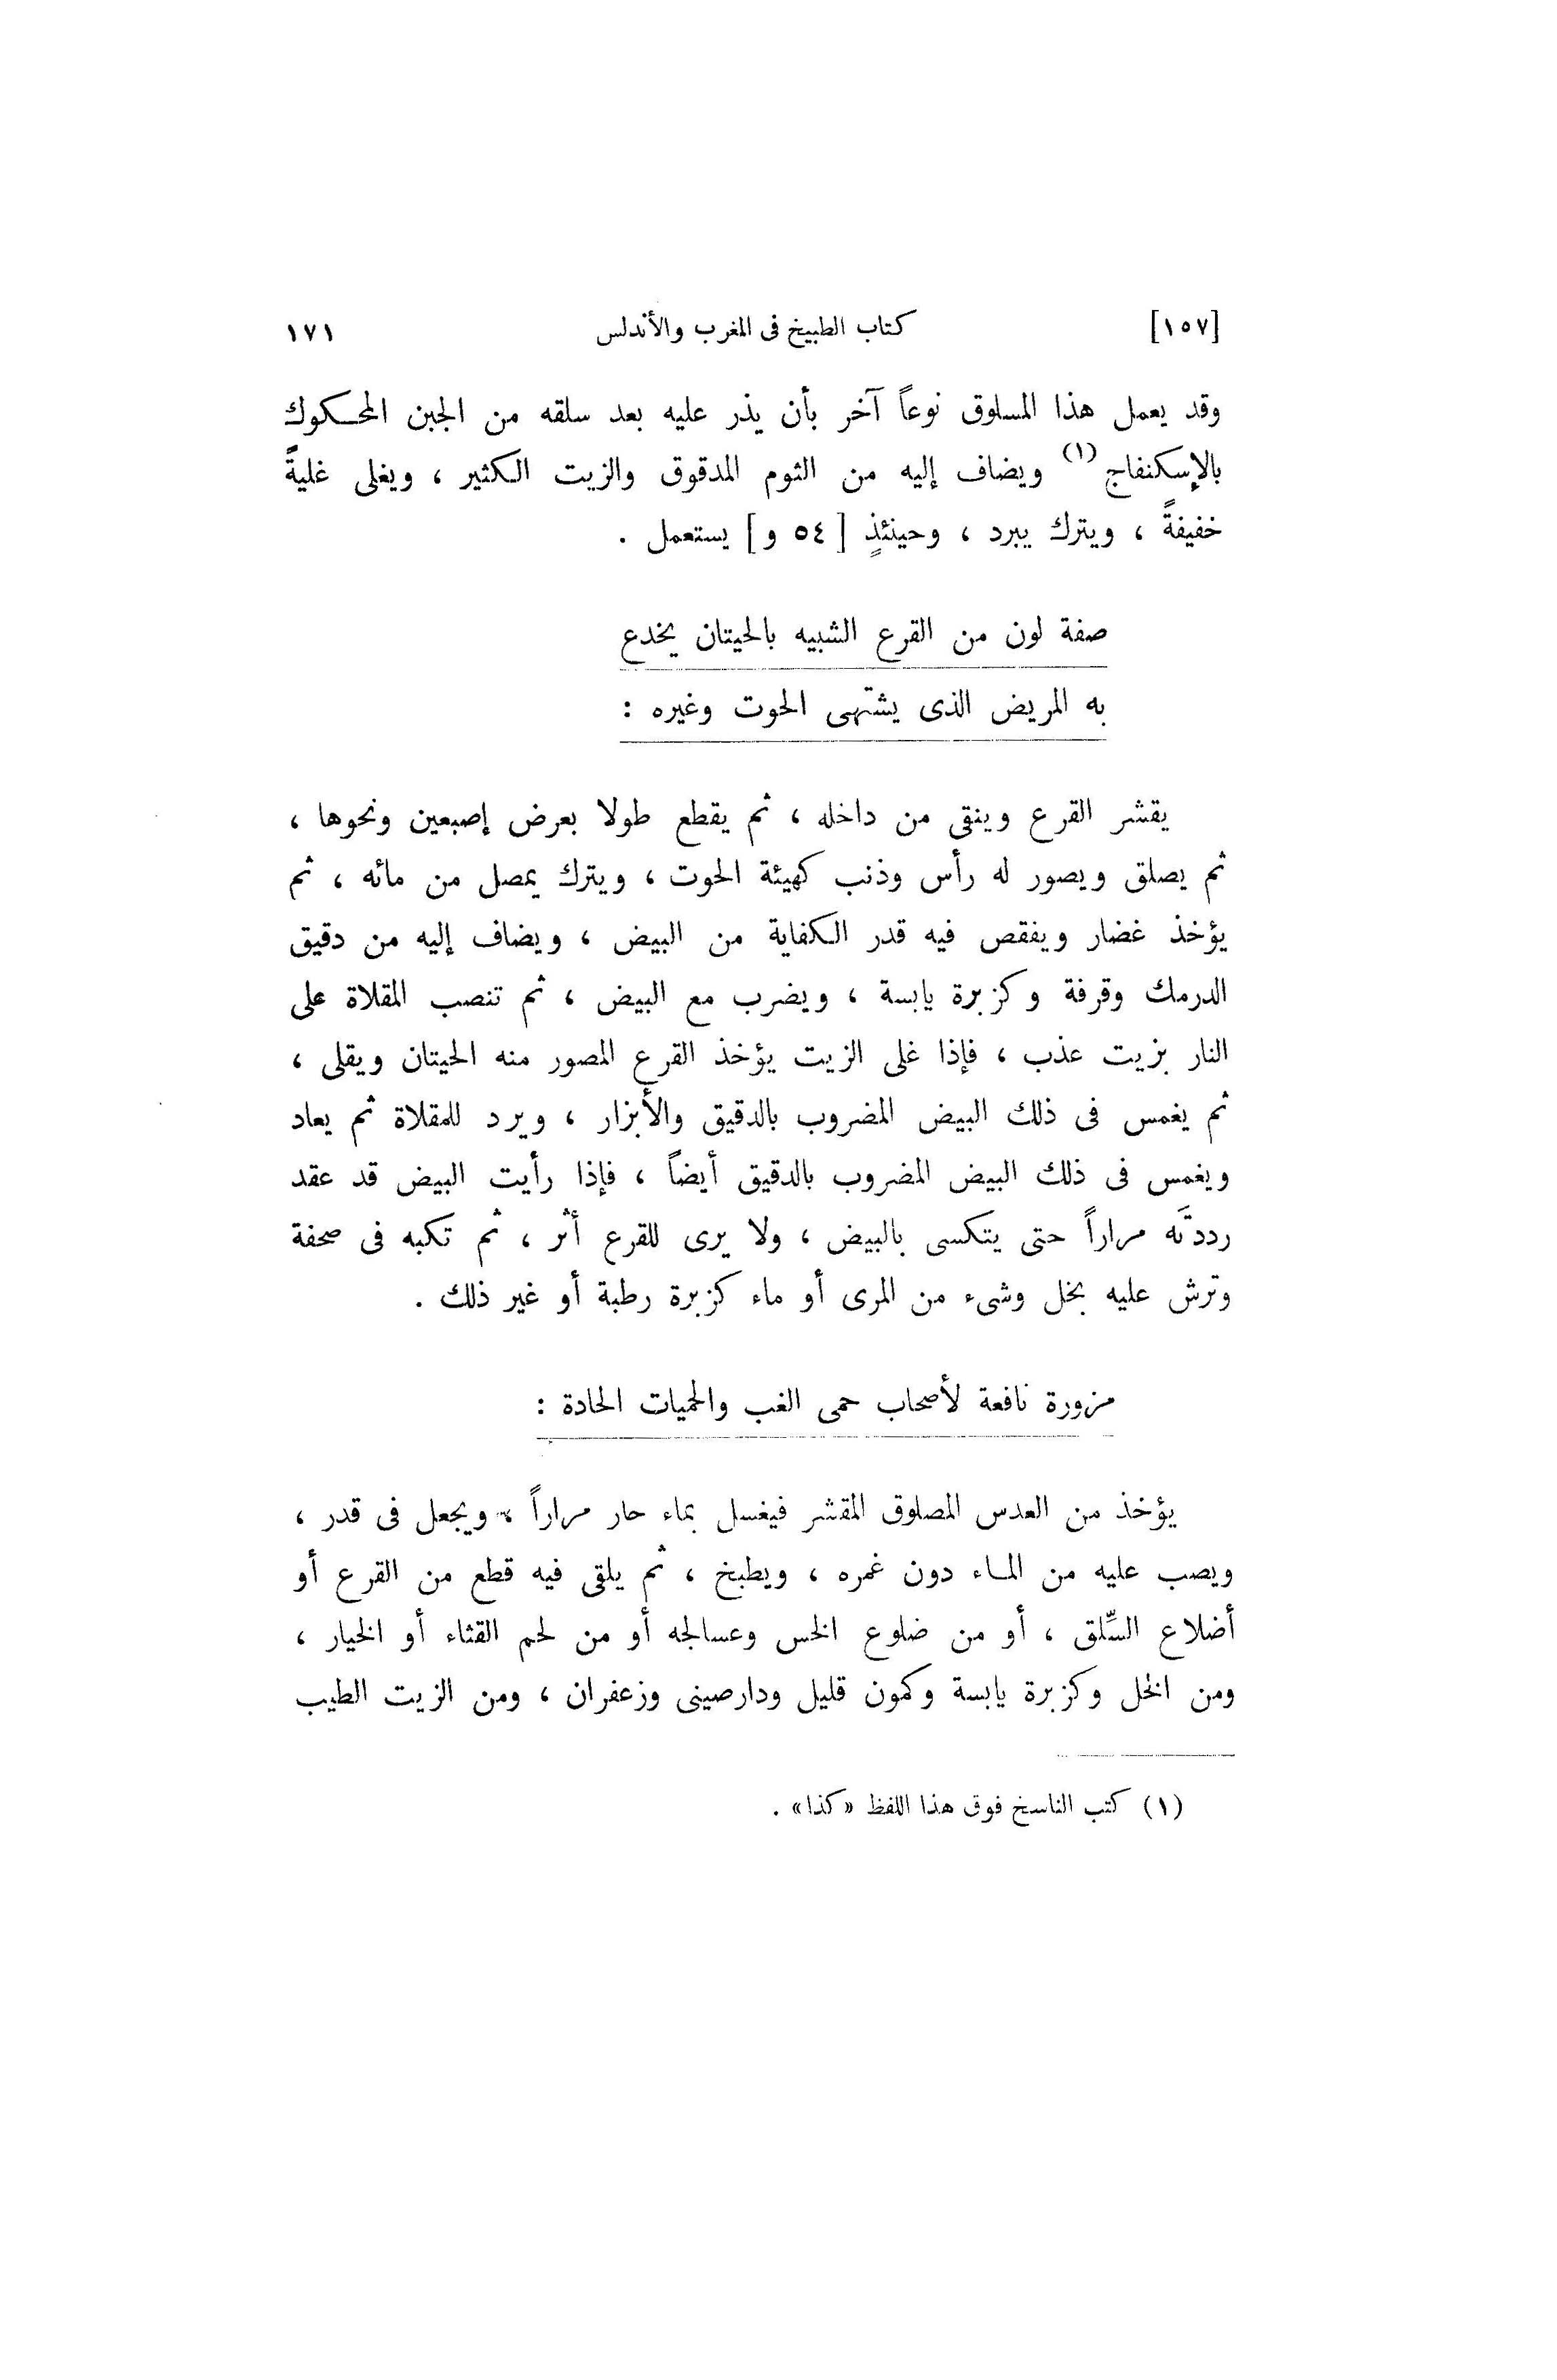 [١٥٧] كتاب الطبيخ فى المغرب والأندلس ١٧١
وقد يعمل هذا المسلوق نوعاً آخر بأن يذر عليه بعد سلقه من الجبن المحكوك
بالإسكنفاج (١) ويضاف إليه من الثوم المدقوق والزيت الكثير ، ويغلى غليةً
خفيفةً ، ويترك يبرد ، وحينئذٍ [ ٥٤ و ] يستعمل .
صفة لون من القرع الشبيه بالحيتان يخدع
به المريض الذى يشتهى الحوت وغيره :
يقشر القرع وينقى من داخله ، ثم يقطع طولا بعرض إصبعين ونحوها ،
ثم يصلق ويصور له رأس وذنب كهيئة الحوت ، ويترك يمصل من مائه ، ثم
يؤخذ غضار ويفقص فيه قدر الكفاية من البيض ، ويضاف إليه من دقيق
الدرمك وقرفة وكزبرة يابسة ، ويضرب مع البيض ، ثم تنصب المقلاة على
النار بزيت عذب ، فإذا غلى الزيت يؤخذ القرع المصور منه الحيتان ويقلى ،
ثم يغمس فى ذلك البيض المضروب بالدقيق والأبزار ، ويرد للمقلاة ثم يعاد
ويغمس فى ذلك البيض المضروب بالدقيق أيضاً ، فإذا رأيت البيض قد عقد
رددتَه مراراً حتى يتكسى بالبيض ، ولا يرى للقرع أثر ، ثم تكبه فى صحفة
وترش عليه بخل وشىء من المرى أو ماء كزبرة رطبة أو غير ذلك .
مزورة نافعة لأصحاب حمى الغب والحميات الحادة :
يؤخذ من العدس المصلوق المقشر فيغسل بماء حار مراراً ، ويجعل فى قدر ،
ويصب عليه من الماء دون غمره ، ويطبخ ، ثم يلقى فيه قطع من القرع أو
أضلاع السِّلق ، أو من ضلوع الخس وعسالجه أو من لحم القثاء أو الخيار ،
ومن الخل وكزبرة يابسة وكمون قليل ودارصينى وزعفران ، ومن الزيت الطيب
(١) كتب الناسخ فوق هذا اللفظ «كذا» .